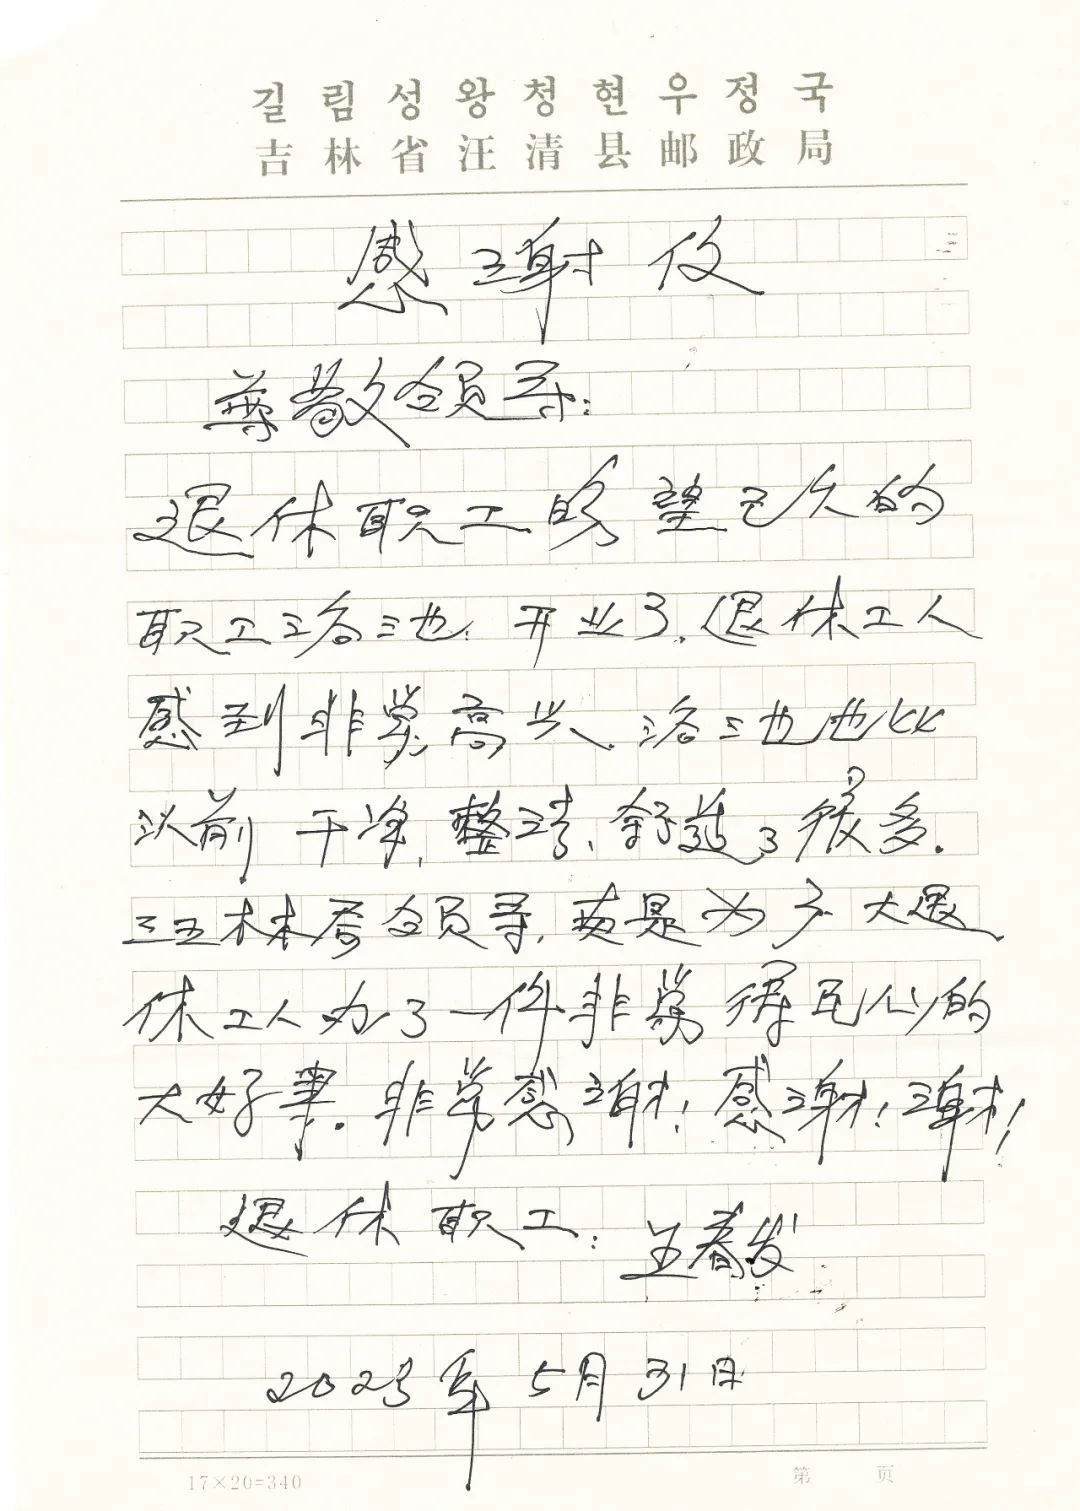 길림성왕청현우정국
吉林省汪清县邮政局
感谢信
尊敬领导：
退休职工盼望已久的
职工浴池开业了，退休工人
感到非常高兴，浴池也比
以前干净，整洁，舒适了很多。
领导，真是为广大退
休工人办了一件非常得民心的
大好事。非常感谢！感谢！谢！
退休职工：王春发
2023年5月31日
17×20=340
第 页